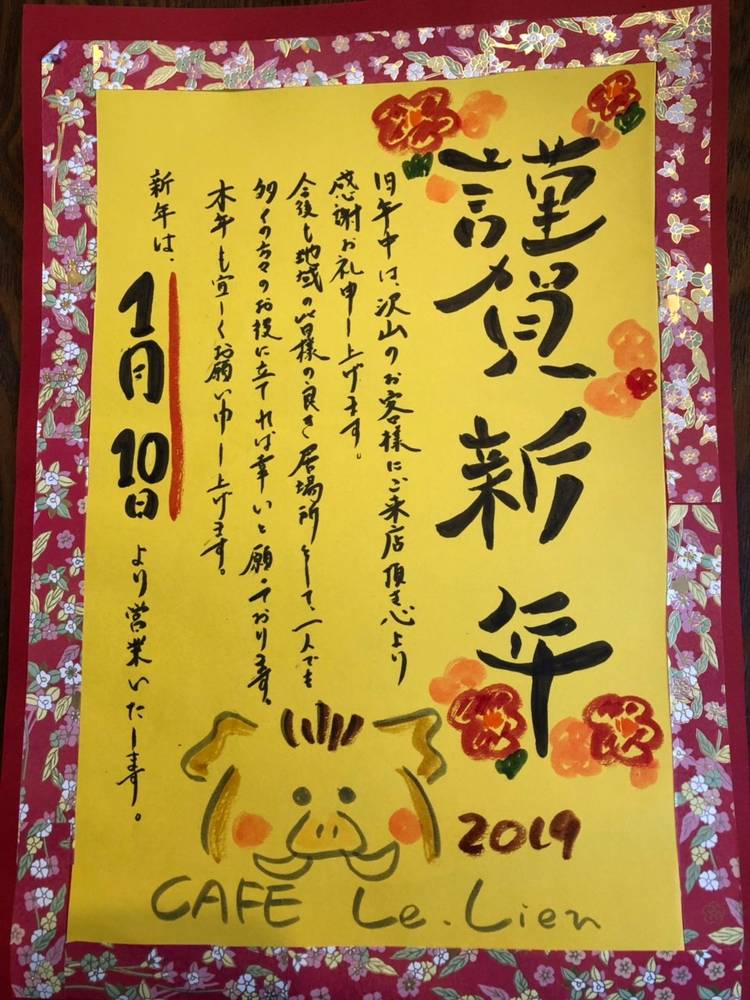 謹賀新年
旧年中は、沢山のお客様にご来店頂き心より
感謝お礼申し上げます。
今後も地域の皆様の良き居場所として、一人でも
多くの方々のお役に立てれば幸いと願っております。
本年も宜しくお願い申し上げます。
新年は、1月10日より営業いたします。
2019
CAFE Le.Lien